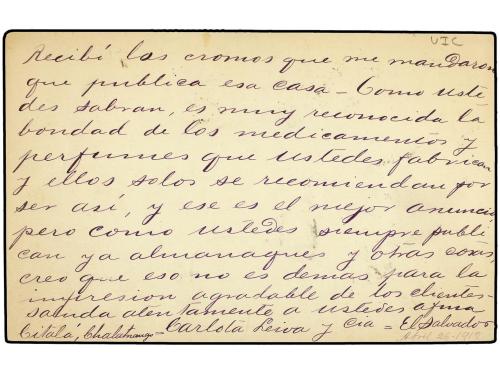 VIC
Recibí los cromos que me mandaron
que publica esa casa - Como uste
des sabran, es muy reconocida la
bondad de los medicamentos y
perfumes que ustedes fabrican
y ellos solos se recomiendan por
ser así, y ese es el mejor anuncio,
pero como ustedes siempre publi
can ya almanaques y otras cosas,
creo que eso no es demas para la
impresion agradable de los clientes-
saluda atentamente a ustedes afma
Citalá, Chalatnango - Carlota Leiva y Cia - El Salvador
Abril 25-1919